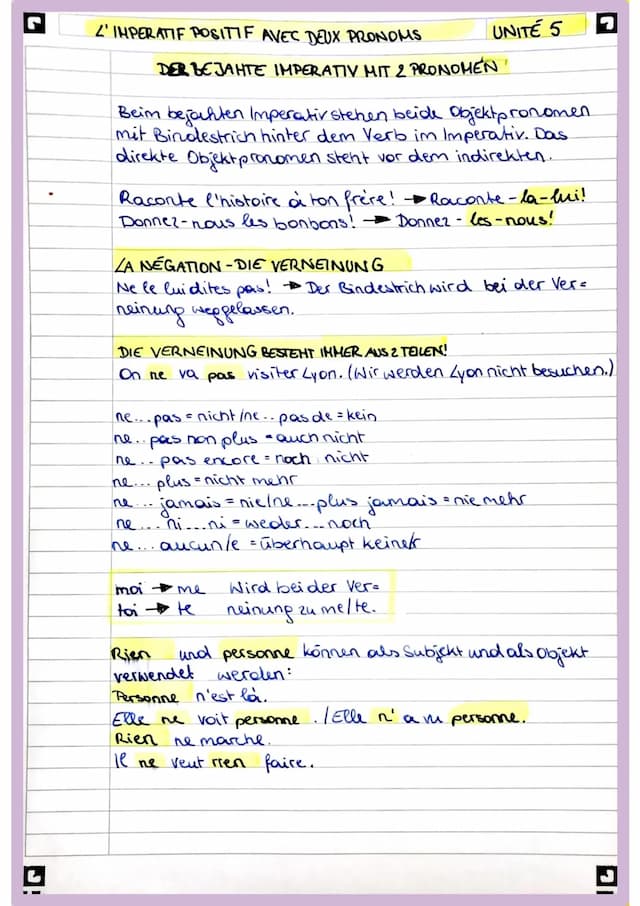 L'IMPERATIF POSITIF AVEC DEUX PRONOMS UNITÉ 5
DER BEJAHTE IMPERATIV MIT 2 PRONOMEN
Beim bejahten Imperativ stehen beide Objektpronomen
mit Bindestrich hinter dem Verb im Imperativ. Das
direkte Objektpronomen steht vor dem indirekten.
Raconte l'histoire à ton frère! → Raconte-la-lui!
Donnez-nous les bonbons! → Donnez-les-nous!
LA NÉGATION-DIE VERNEINUNG
Ne le lui dites pas! → Der Bindestrich wird bei der Ver=
neinung weggelassen.
DIE VERNEINUNG BESTEHT IMMER AUS 2 TEILEN!
On ne va pas visiter Lyon. (Wir werden Lyon nicht besuchen.)
ne... pas = nicht /ne.. pas de = kein
ne.. pas non plus = auch nicht
ne... pas encore = noch nicht
ne... plus = nicht mehr
ne... jamais = nie/ne...plus jamais = nie mehr
ne... ni...ni = weder...noch
ne... aucun/e = überhaupt keine/r
moi → me Wird bei der Ver=
toi → te neinung zu me/te.
Rien und personne können als Subjekt und als Objekt
verwendet werden:
Personne n'est là.
Elle ne voit personne. /Elle n'a vu personne.
Rien ne marche.
Il ne veut rien faire.